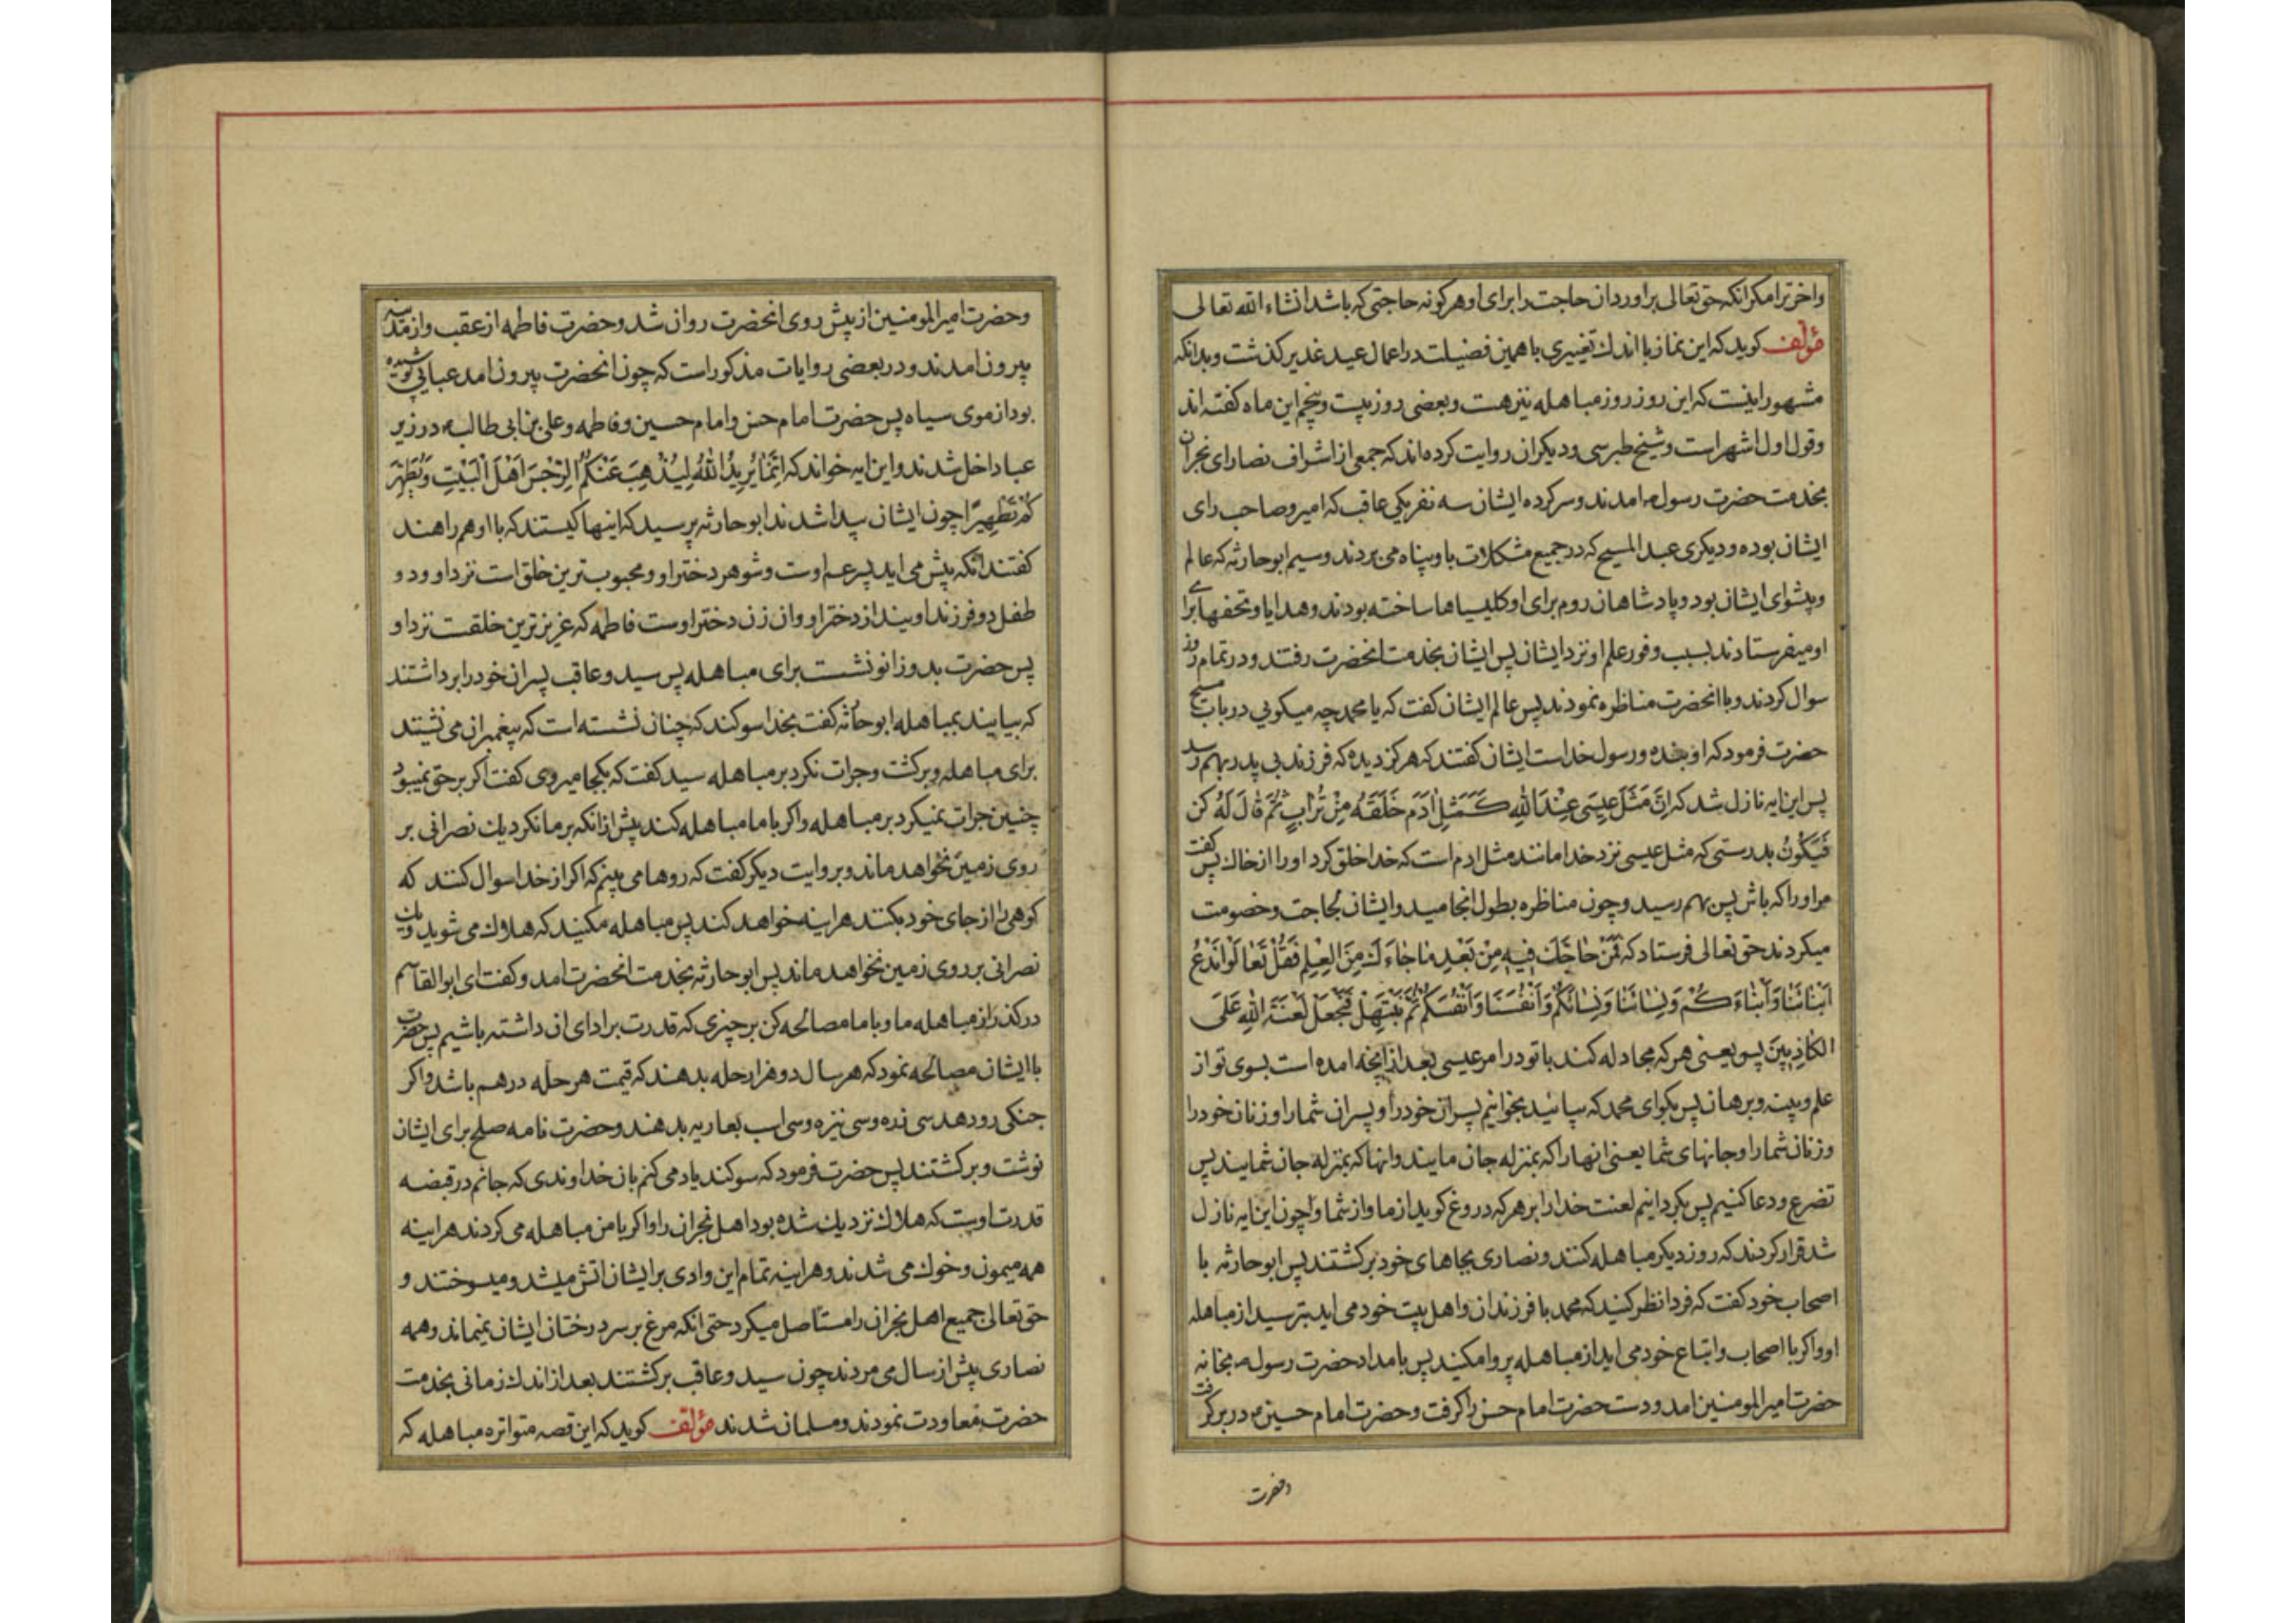 واخرترا مکر انکه حق تعالی براورد ان حاجت را برای او هر کونه حاجتی که باشد انشاء الله تعالی
مؤلف کوید که این نماز با اندك تغییری با همین فضیلت در اعمال عید غدیر کذشت و بدانکه
مشهور اینست که این روز روز مباهله نیز هست و بعضی روز بیست و پنجم این ماه کفته اند
و قول اول اشهر است و شیخ طبرسی و دیکران روایت کرده اند که جمعی از اشراف نصارای نجران
بخدمت حضرت رسول امدند و سرکرده ایشان سه نفر یکی عاقب که امیر و صاحب رای
ایشان بوده و دیکری عبد المسیح که در جمیع مشکلات باو پناه می بردند و سیم ابو حارثه که عالم
و پیشوای ایشان بود و پادشاهان روم برای او کلیساها ساخته بودند و هدایا و تحفها برای
او میفرستادند بسبب وفور علم او نزد ایشان پس ایشان بخدمت انحضرت رفتند و در تمام روز
سوال کردند و با انحضرت مناظره نمودند پس عالم ایشان کفت که یا محمد چه میکویی در باب مسیح
حضرت فرمود که او بنده و رسول خداست ایشان کفتند که هرکز دیده که فرزند بی پدر بهم رسد
پس این ایه نازل شد که اِنَّ مَثَلَ عِیسَی عِنْدَ اللهِ کَمَثَلِ ادَمَ خَلَقَهُ مِنْ تُرَابٍ ثُمَّ قَالَ لَهُ کُن
فَیَکُونُ بدرستی که مثل عیسی نزد خدا مانند مثل ادم است که خدا خلق کرد او را از خاك پس کفت
مر او را که باش پس بهم رسید و چون مناظره بطول انجامید و ایشان لجاجت و خصومت
میکردند حق تعالی فرستاد که فَمَنْ حَاجَّكَ فِیهِ مِنْ بَعْدِ مَا جَاءَكَ مِنَ الْعِلْمِ فَقُلْ تَعَالَوْا نَدْعُ
اَبْنَائَنَا وَاَبْنَاءَکُمْ وَنِسَائَنَا وَنِسَائَکُمْ وَاَنْفُسَنَا وَاَنْفُسَکُمْ ثُمَّ نَبْتَهِلْ فَنَجْعَلْ لَعْنَةَ اللهِ عَلَی
الکَاذِبِینَ پس یعنی هر که مجادله کند با تو در امر عیسی بعد از انچه امده است بسوی تو از
علم و بینه و برهان پس بکو ای محمد که بیائید بخوانیم پسران خود را و پسران شما را و زنان خود را
و زنان شما را و جانهای شما یعنی انها را که بمنزله جان مایند و انها که بمنزله جان شمایند پس
تضرع و دعا کنیم پس بکردانیم لعنت خدا را بر هر که دروغ کوید از ما و از شما و چون این ایه نازل
شد قرار کردند که روز دیکر مباهله کنند و نصاری بجاهای خود برکشتند پس ابو حارثه با
اصحاب خود کفت که فردا نظر کنید که محمد با فرزندان و اهل بیت خود می اید بترسید از مباهله
او و اکر با اصحاب و اتباع خود می اید از مباهله پروا مکنید پس بامداد حضرت رسول بخانه
حضرت امیر المومنین امد و دست حضرت امام حسن را کرفت و حضرت امام حسین در بر کرفت
و حضرت
و حضرت امیر المومنین از پیش روی انحضرت روان شد و حضرت فاطمه از عقب و از مدینه
بیرون امدند و در بعضی روایات مذکور است که چون انحضرت بیرون امد عبایی پوشیده
بود از موی سیاه پس حضرت امام حسن و امام حسین و فاطمه و علی بن ابی طالب در زیر
عبا داخل شدند و این ایه خواند که اِنَّمَا یُرِیدُ اللهُ لِیُذْهِبَ عَنْکُمُ الرِّجْسَ اَهْلَ الْبَیْتِ وَیُطَهِّرَ
کُمْ تَطْهِیرًا چون ایشان پیدا شدند ابو حارثه پرسید که اینها کیستند که با او همراهند
کفتند انکه پیش می اید پسر عم اوست و شوهر دختر او و محبوب ترین خلق است نزد او و دو
طفل دو فرزند اویند از دختر او و ان زن دختر اوست فاطمه که عزیزترین خلقست نزد او
پس حضرت بدو زانو نشست برای مباهله پس سید و عاقب پسران خود را برداشتند
که بیایند بمباهله ابو حارثه کفت بخدا سوکند که چنان نشسته است که پیغمبران می نشیند
برای مباهله و برکشت و جرات نکرد بر مباهله سید کفت که بکجا میروی کفت اکر بر حق نمیبود
چنین جرات نمیکرد بر مباهله و اکر با ما مباهله کند پیش از انکه بر ما نکرد یك نصرانی بر
روی زمین نخواهد ماند و بروایت دیکر کفت که روها می بینم که اکر از خدا سوال کنند که
کوهی را از جای خود بکند هراینه خواهد کند پس مباهله مکنید که هلاك می شوید و یك
نصرانی بر روی زمین نخواهد ماند پس ابو حارثه بخدمت انحضرت امد و کفت ای ابو القاسم
در کذر از مباهله ما و با ما مصالحه کن بر چیزی که قدرت بر ادای ان داشته باشیم پس حضرت
با ایشان مصالحه نمود که هر سال دو هزار حله بدهند که قیمت هر حله درهم باشد و اکر
جنکی رو دهد سی زره و سی نیزه و سی اسب بعاریه بدهند و حضرت نامه صلح برای ایشان
نوشت و برکشتند پس حضرت فرمود که سوکند یاد می کنم بان خداوندی که جانم در قبضه
قدرت اوست که هلاك نزدیك شده بود اهل نجران را و اکر با من مباهله می کردند هراینه
همه میمون و خوك می شدند و هراینه تمام این وادی بر ایشان اتش میشد و میسوختند و
حق تعالی جمیع اهل نجران را مستاصل میکرد حتی انکه مرغ بر سر درختان ایشان نمیماند و همه
نصاری پیش از سال می مردند چون سید و عاقب برکشتند بعد از اندك زمانی بخدمت
حضرت معاودت نمودند و مسلمان شدند مؤلف کوید که این قصه متواتره مباهله که